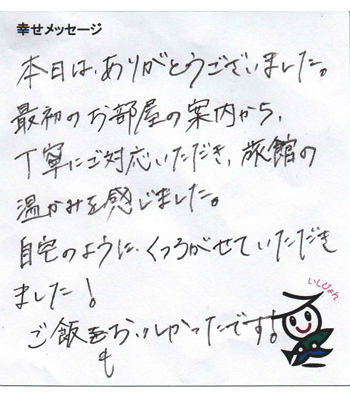 幸せメッセージ
本日は、ありがとうございました。
最初のお部屋の案内から、
丁寧にご対応いただき、旅館の
温かみを感じました。
自宅のように、くつろがせていただき
ました！
ご飯もおいしかったです！
いしぴょん